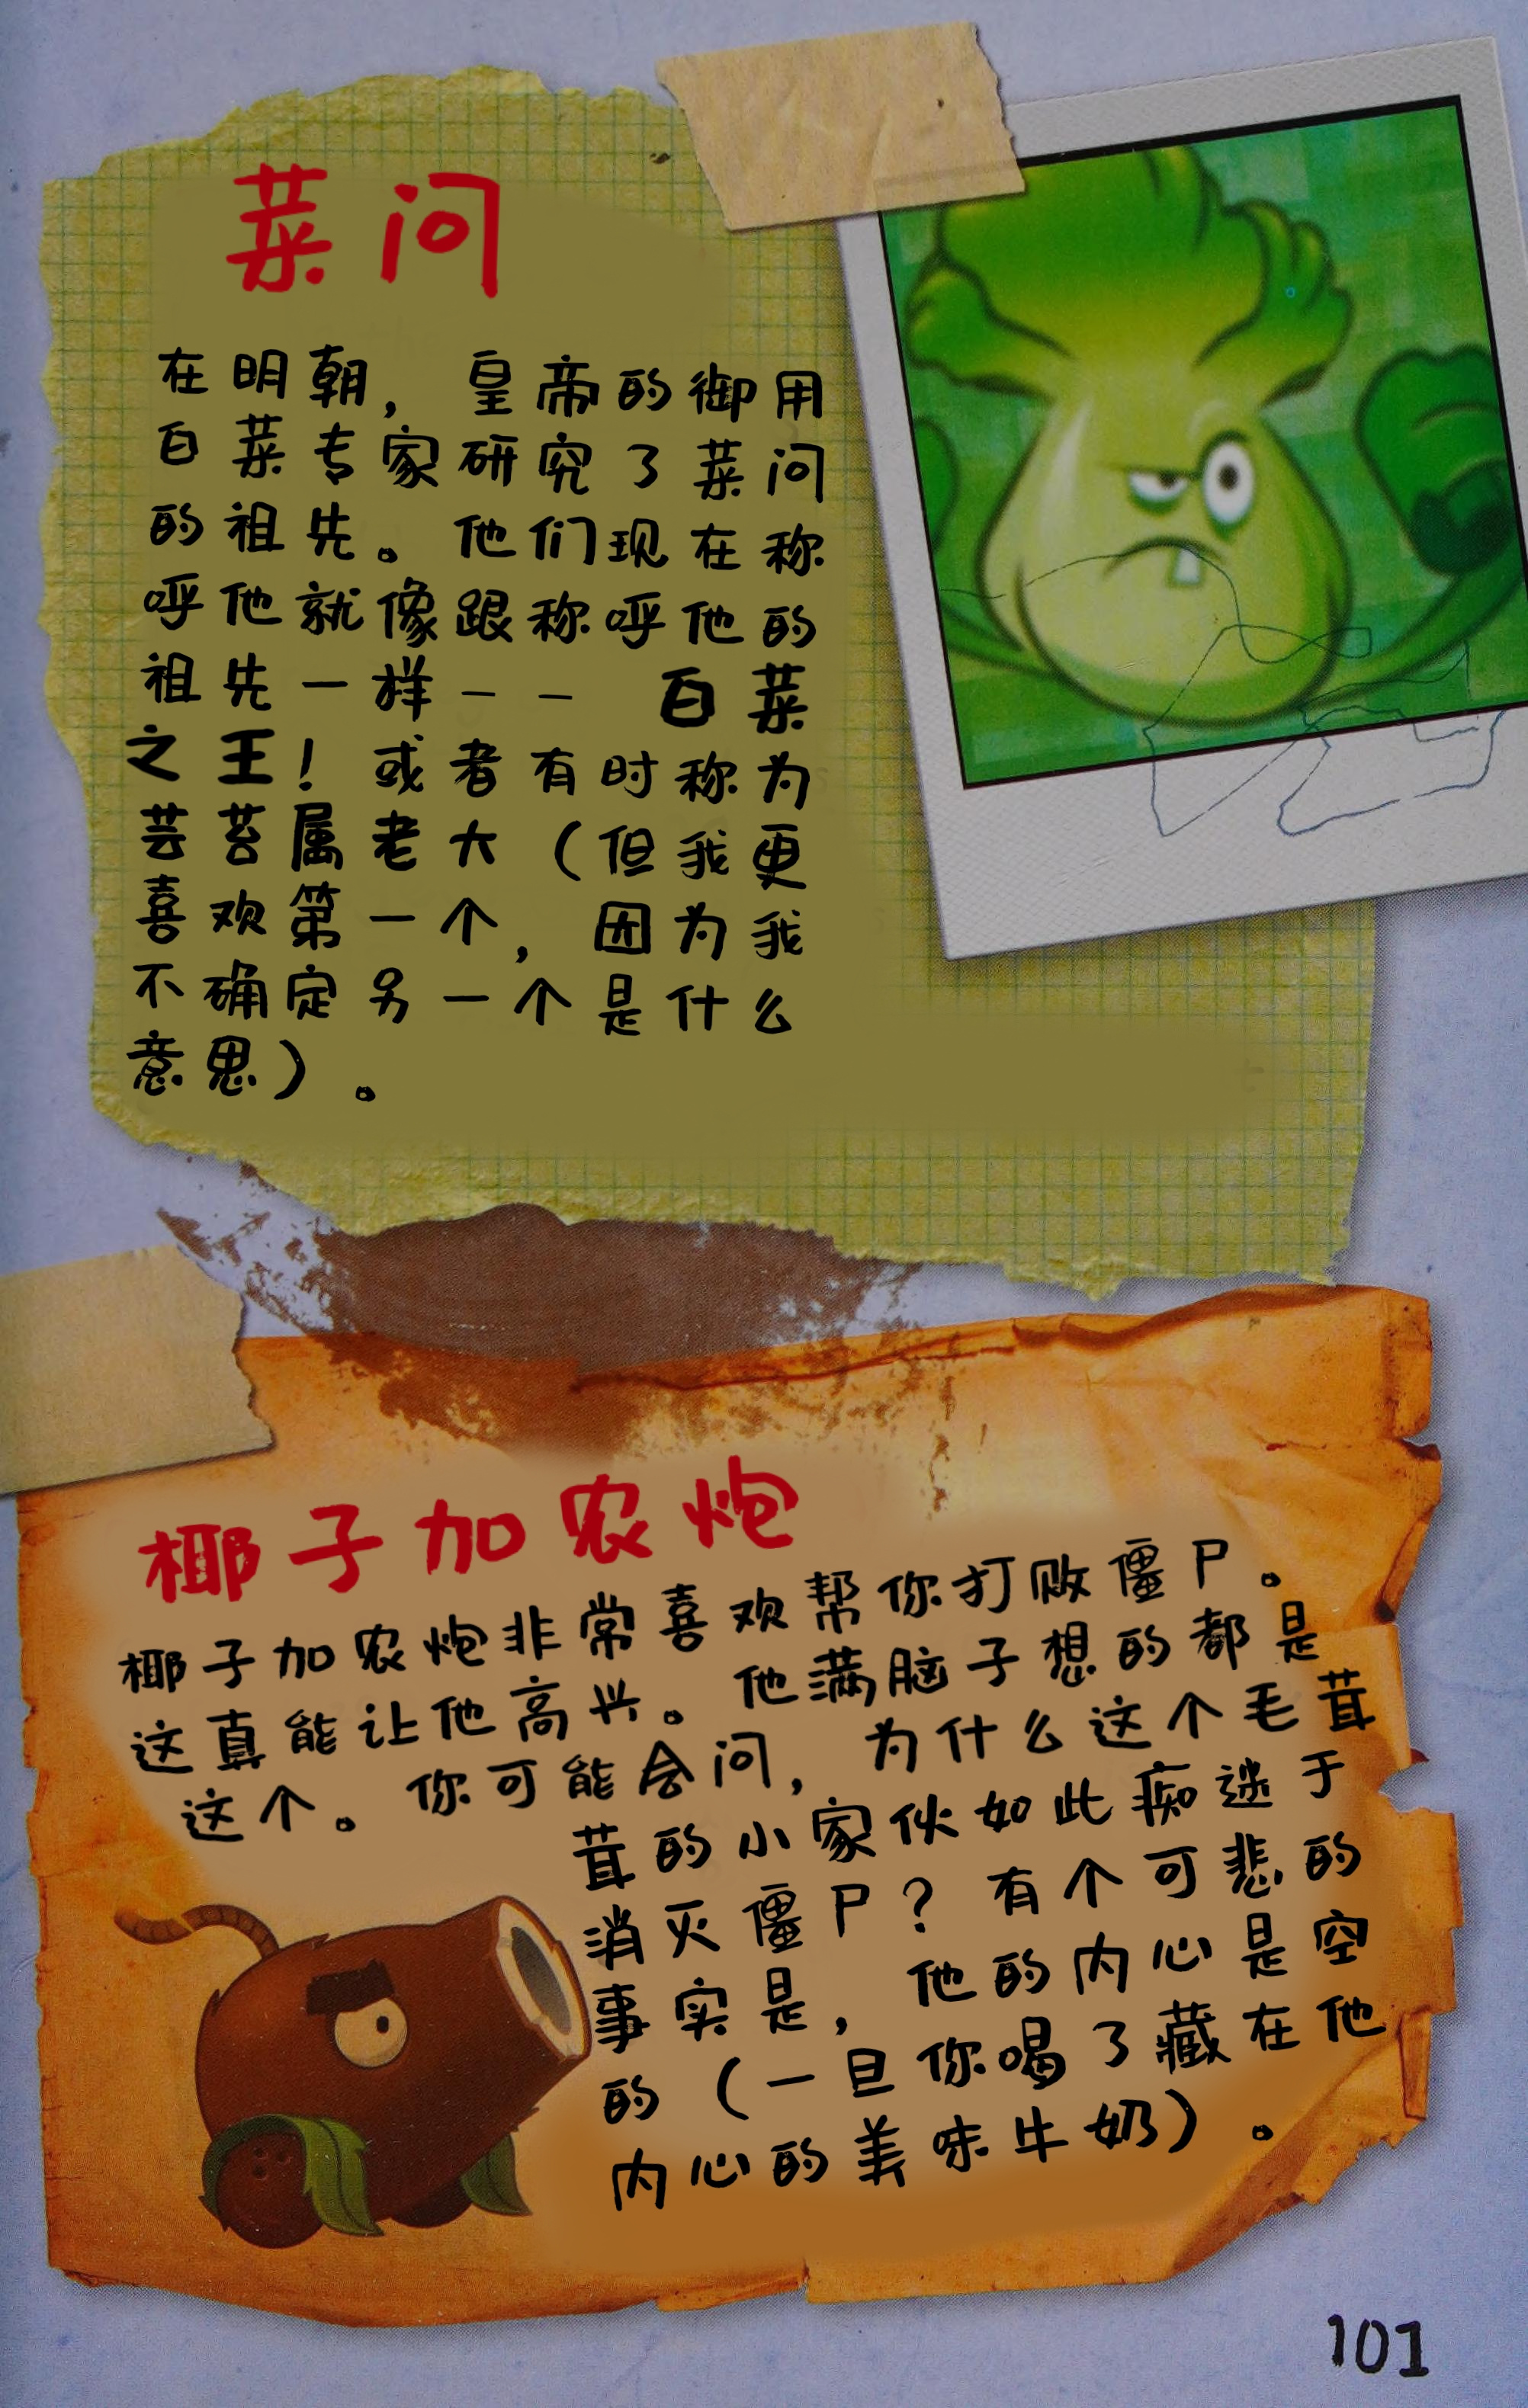 菜问
在明朝，皇帝的御用
白菜专家研究了菜问
的祖先。他们现在称
呼他就像跟称呼他的
祖先一样－－白菜
之王！或者有时称为
芸苔属老大（但我更
喜欢第一个，因为我
不确定另一个是什么
意思）。
椰子加农炮
椰子加农炮非常喜欢帮你打败僵尸。
这真能让他高兴。他满脑子想的都是
这个。你可能会问，为什么这个毛茸
茸的小家伙如此痴迷于
消灭僵尸？有个可悲的
事实是，他的内心是空
的（一旦你喝了藏在他
内心的美味牛奶）。
101